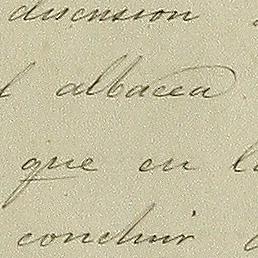 discusion
l albacea
que en l
concluir